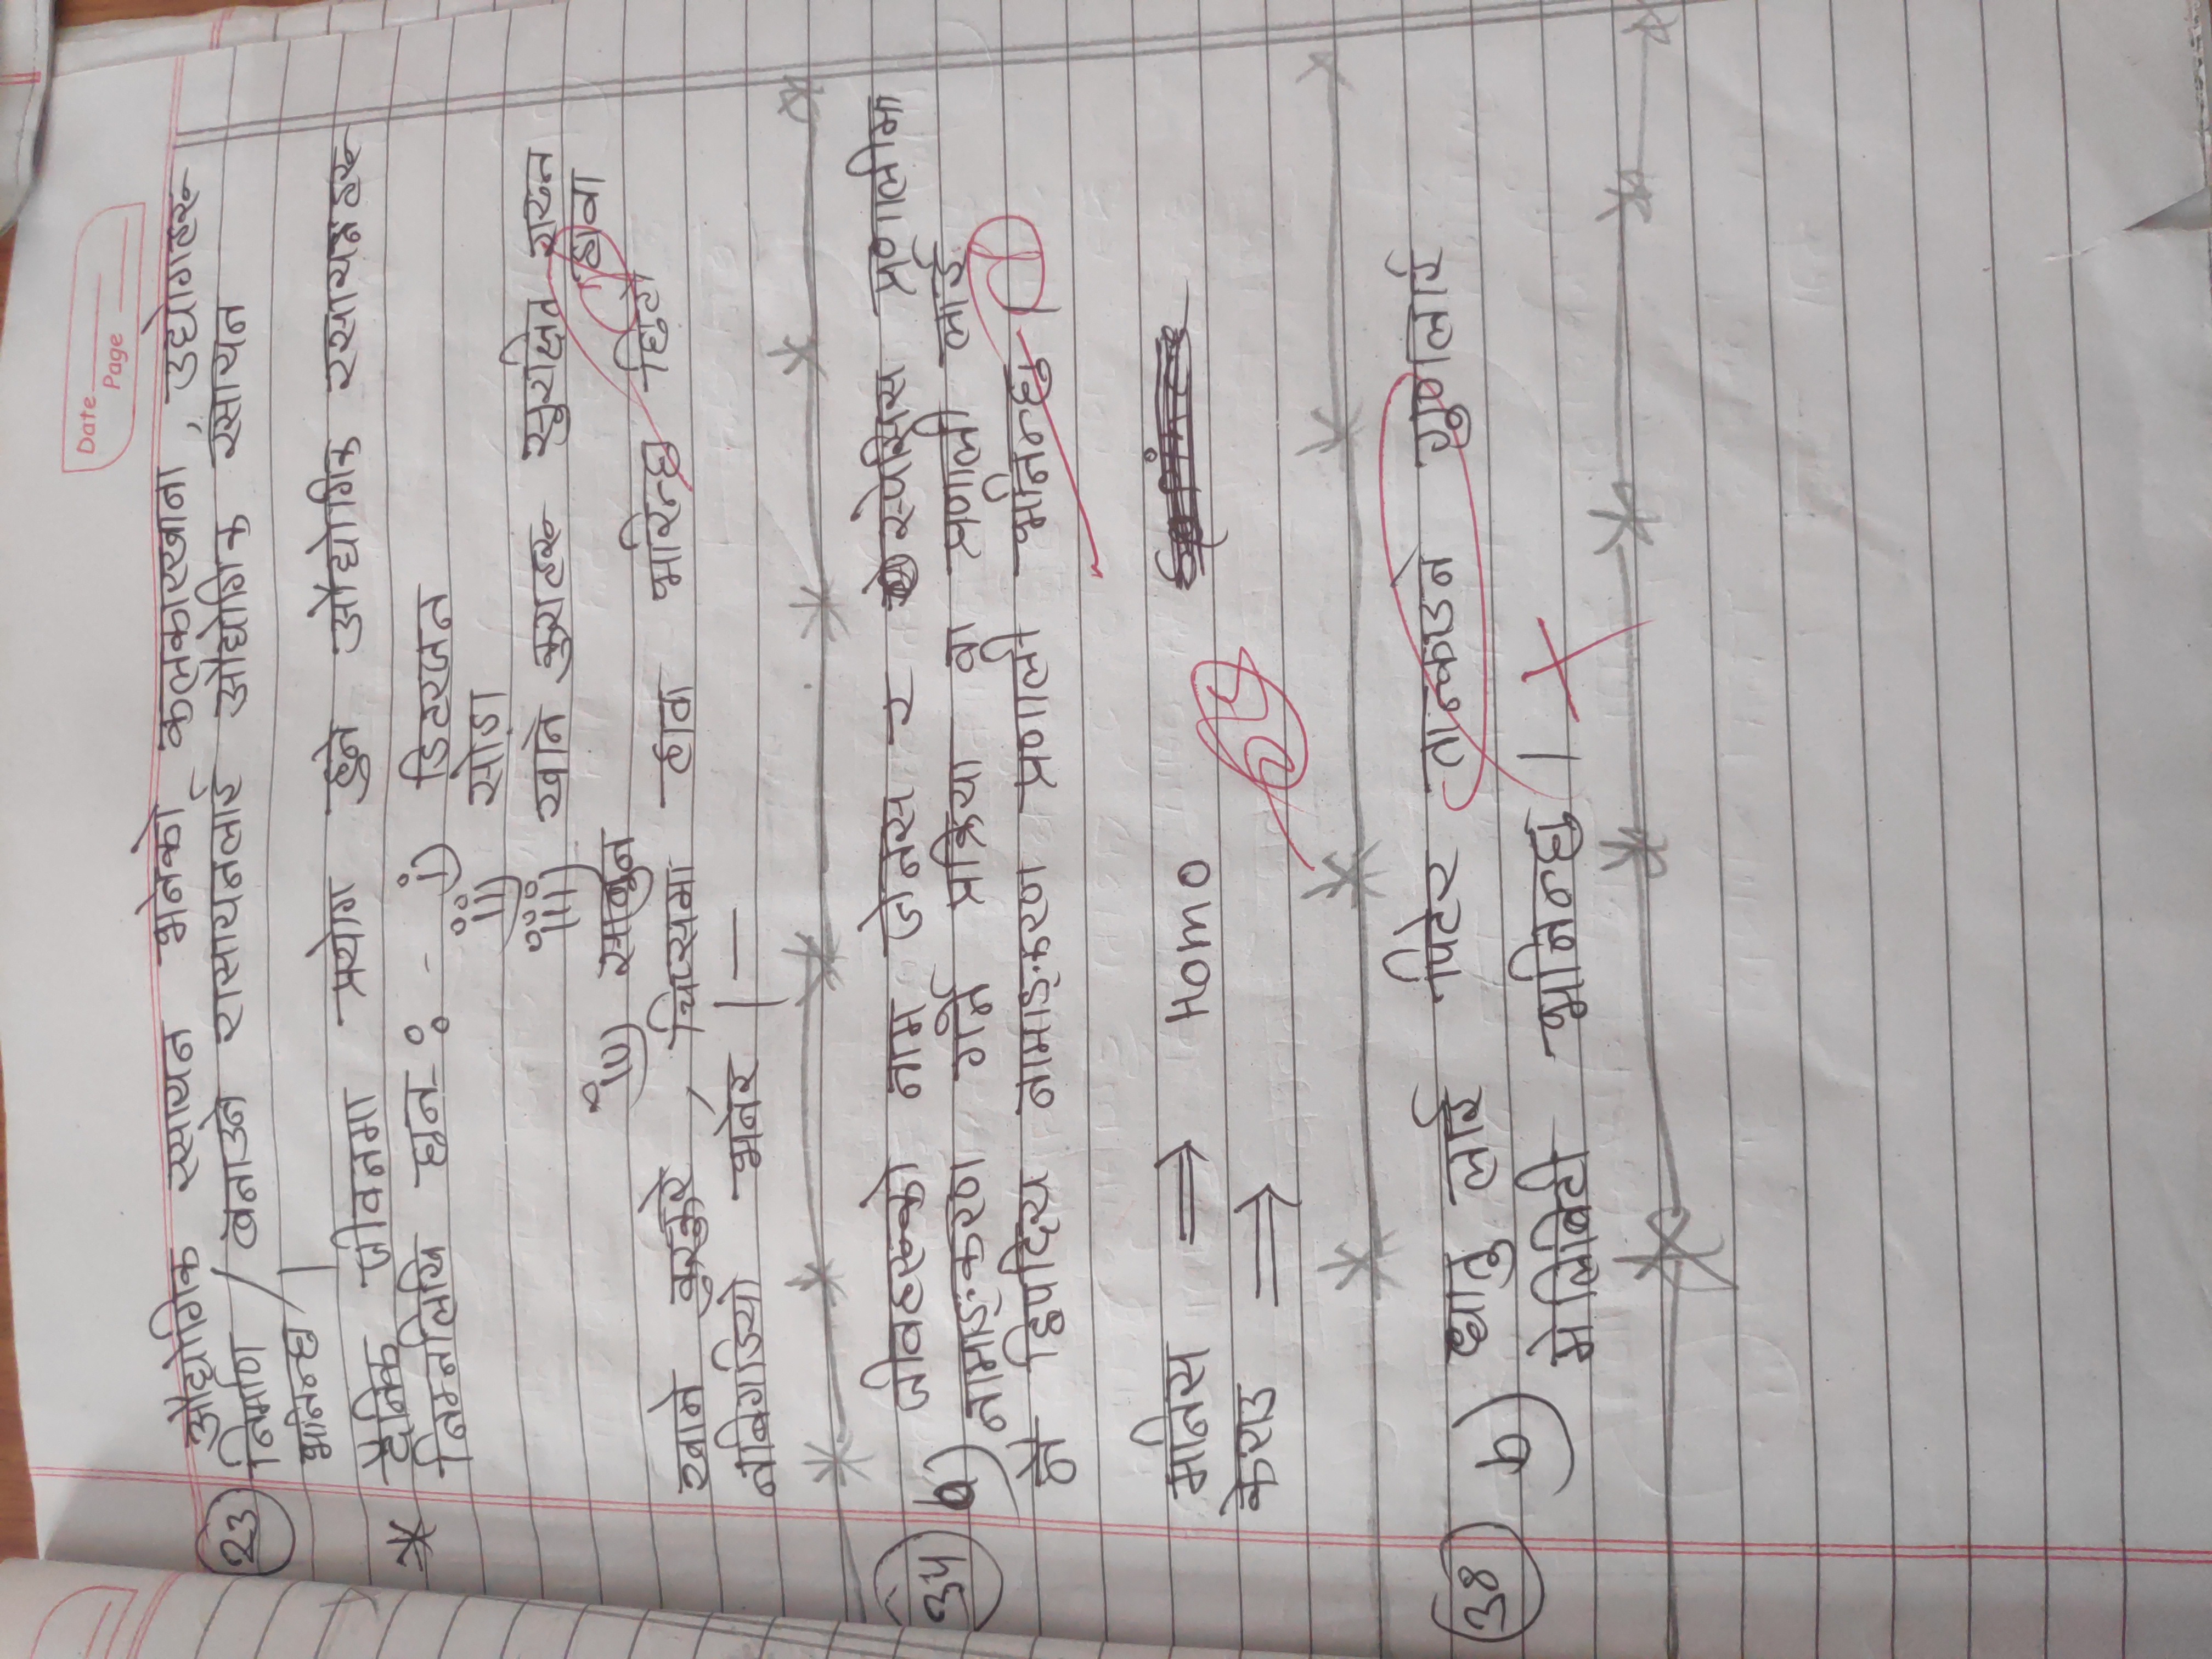 Date
Page
औद्योगिक रसायन भनेको कलकारखाना, उद्योगहरू
23 निर्माण / बनाउने रासायनलाई औद्योगिक रसायन
भनिन्छ |
* दैनिक जीवनमा प्रयोग हुने औद्योगिक रसायनहरू
निम्नलिखि छन् : - i) डिटरजन
ii) सोडा
iii) खाने कुराहरू सुरक्षित राख्न
हावा
iv) साबुन
खाने कुरकुरे, चिप्समा हावा भरिन्छ छिटो
नबिगडियो भनेर | —
34 a) जीवहरूको नाम जेनस र स्पेसिस प्रणालीमा
नामाङ्करण गर्ने प्रक्रिया वा प्रणाली लाई
नै द्विपदिय नामाङ्करण प्रणाली भनिन्छ | 1
मानिस ⇒ Homo
केराउ ⇒
38 b) धातु लाई पिटेर तान्काउने गुणलाई
मेलिबिटी भनिन्छ |